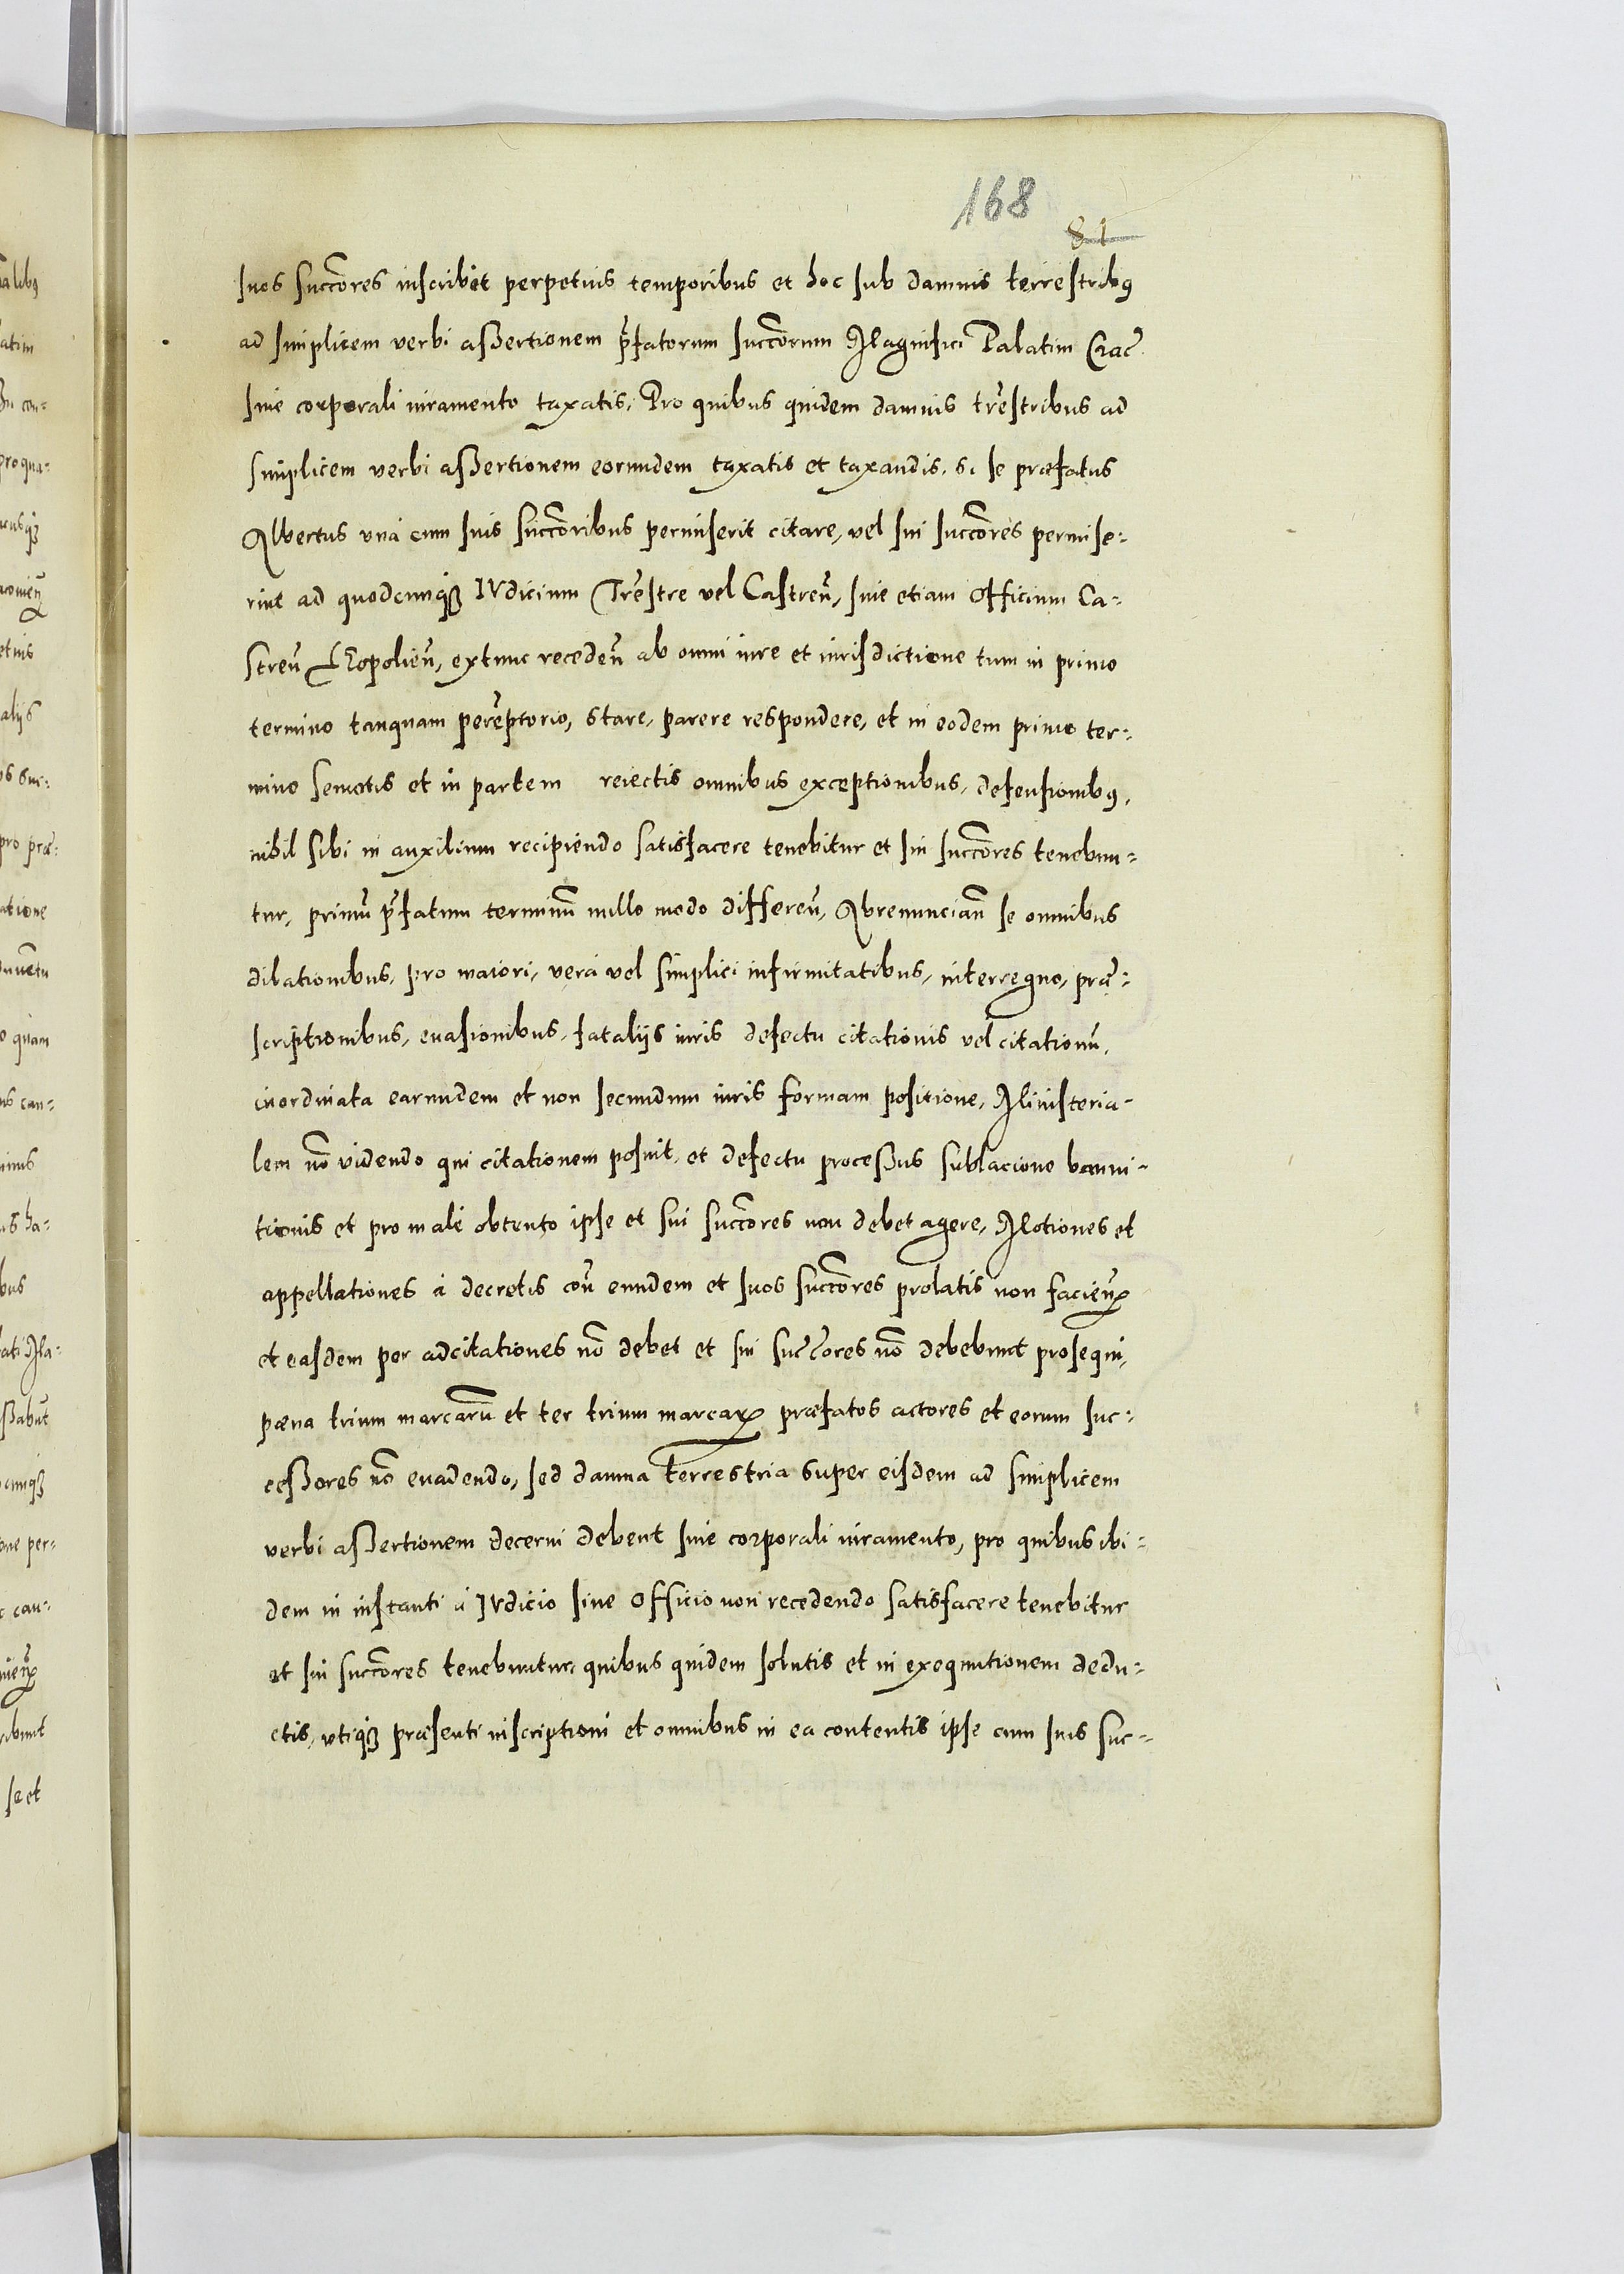 168
81
suos succores inscribet perpetuis temporibus et hoc sub damnis terrestribꝰ
ad simplicem verbi aßertionem p̄fatorum succorum Magnifici Palatini Crac̄
sine corporali iuramento taxatis, Pro quibus quidem damnis tr̄estribus ad
simplicem verbi aßertionem eorundem taxatis et taxandis, si se præfatus
Albertus unà cum suis succoribus permiserit citare, vel sui succores permise:
rint ad quodcunqꝫ IVdicium Tr̄estre vel Castren̄, siue etiam Officium Ca:
stren̄ Leopolien̄, extunc receden̄ ab omni iure et iurisdictione tum in primo
termino tanquam perēptorio, stare, parere respondere, et in eodem primo ter:
mino semotis et in partem reiectis omnibus exceptionibus, defensionibꝰ,
nihil sibi in auxilium recipiendo satisfacere tenebitur et sui succores tenebun:
tur, primū p̄fatum terminū nullo modo differen̄, Abrenuncian̄ se omnibus
dilationibus, pro maiori, verà vel simplici infirmitatibus, interregno, præ:
scriptionibus, euasionibus, fatalijs iuris defectu citationis vel citationū,
inordinata earundem et non secundum iuris formam positione, Ministeria-
lem nō videndo qui citationem posuit, et defectu proceßus sublacione banni-
tionis et pro malè obtento ipse et sui succores non debet agere, Motiones et
appellationes à decretis con̄ eundem et suos succores prolatis non facien̄
et easdem per adcitationes nō debet et sui succores nō debebunt prosequi,
pœna trium marcarū et ter trium marcaꝝ præfatos actores et eorum suc:
ceßores nō euadendo, sed damna terrestria super eisdem ad simplicem
verbi aßertionem decerni debent sine corporali iuramento, pro quibus ibi:
dem in instanti à IVdicio siue Officio non recedendo satisfacere tenebitur
et sui succores tenebuntur, quibus quidem solutis et in exequutionem dedu:
ctis, vtiqꝫ præsenti inscriptioni et omnibus in ea contentis ipse cum suis suc: